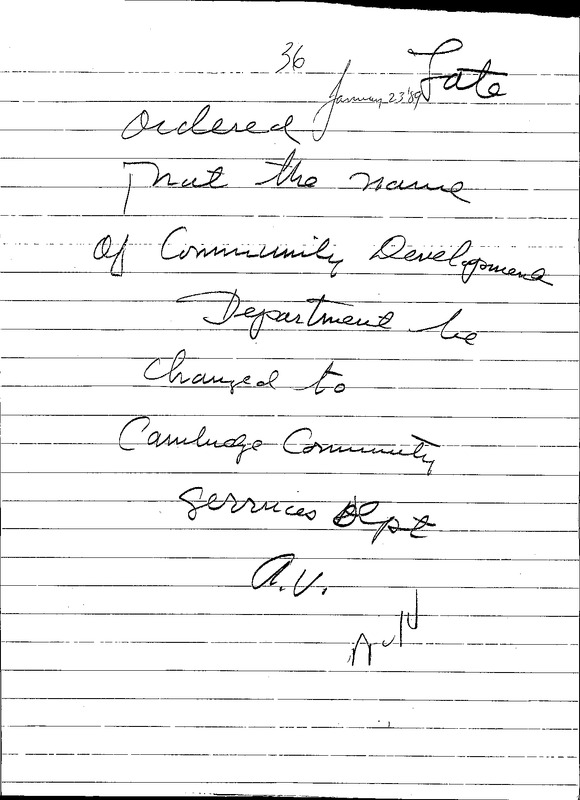 36
Late
January 23 '89
Ordered
That the name
Of Community Development
Department be
changed to
Cambridge Community
Services Dept
A.V.